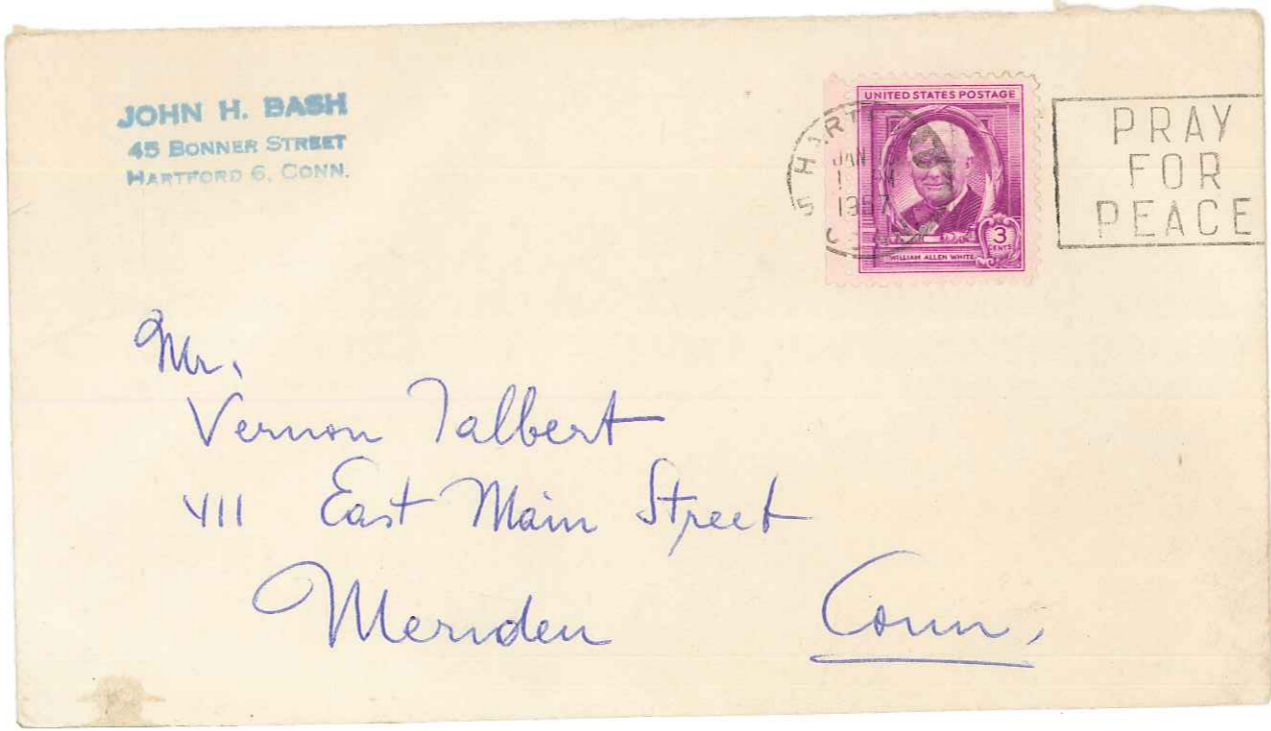 JOHN H. BASH
45 BONNER STREET
HARTFORD 6, CONN.
UNITED STATES POSTAGE
3
CENTS
WILLIAM ALLEN WHITE
5 HART
JAN
1957
PRAY
FOR
PEACE
Mr.
Vernon Talbert
411 East Main Street
Meriden Conn.